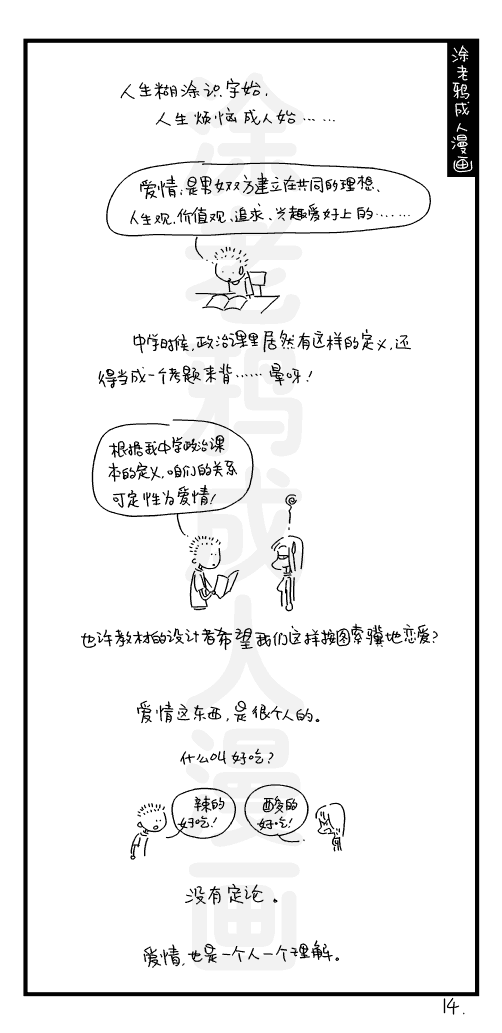 涂老鸦成人漫画
人生糊涂识字始，
人生烦恼成人始……
爱情：是男女双方建立在共同的理想、
人生观、价值观、追求、兴趣爱好上的……
中学时候，政治课里居然有这样的定义，还
得当成一个考题来背……晕呀！
根据我中学政治课
本的定义，咱们的关系
可定性为爱情！
也许教材的设计者希望我们这样按图索骥地恋爱？
爱情这东西，是很个人的。
什么叫好吃？
辣的
好吃！
酸的
好吃！
没有定论。
爱情，也是一个人一个理解。
14.
涂老鸦成人漫画